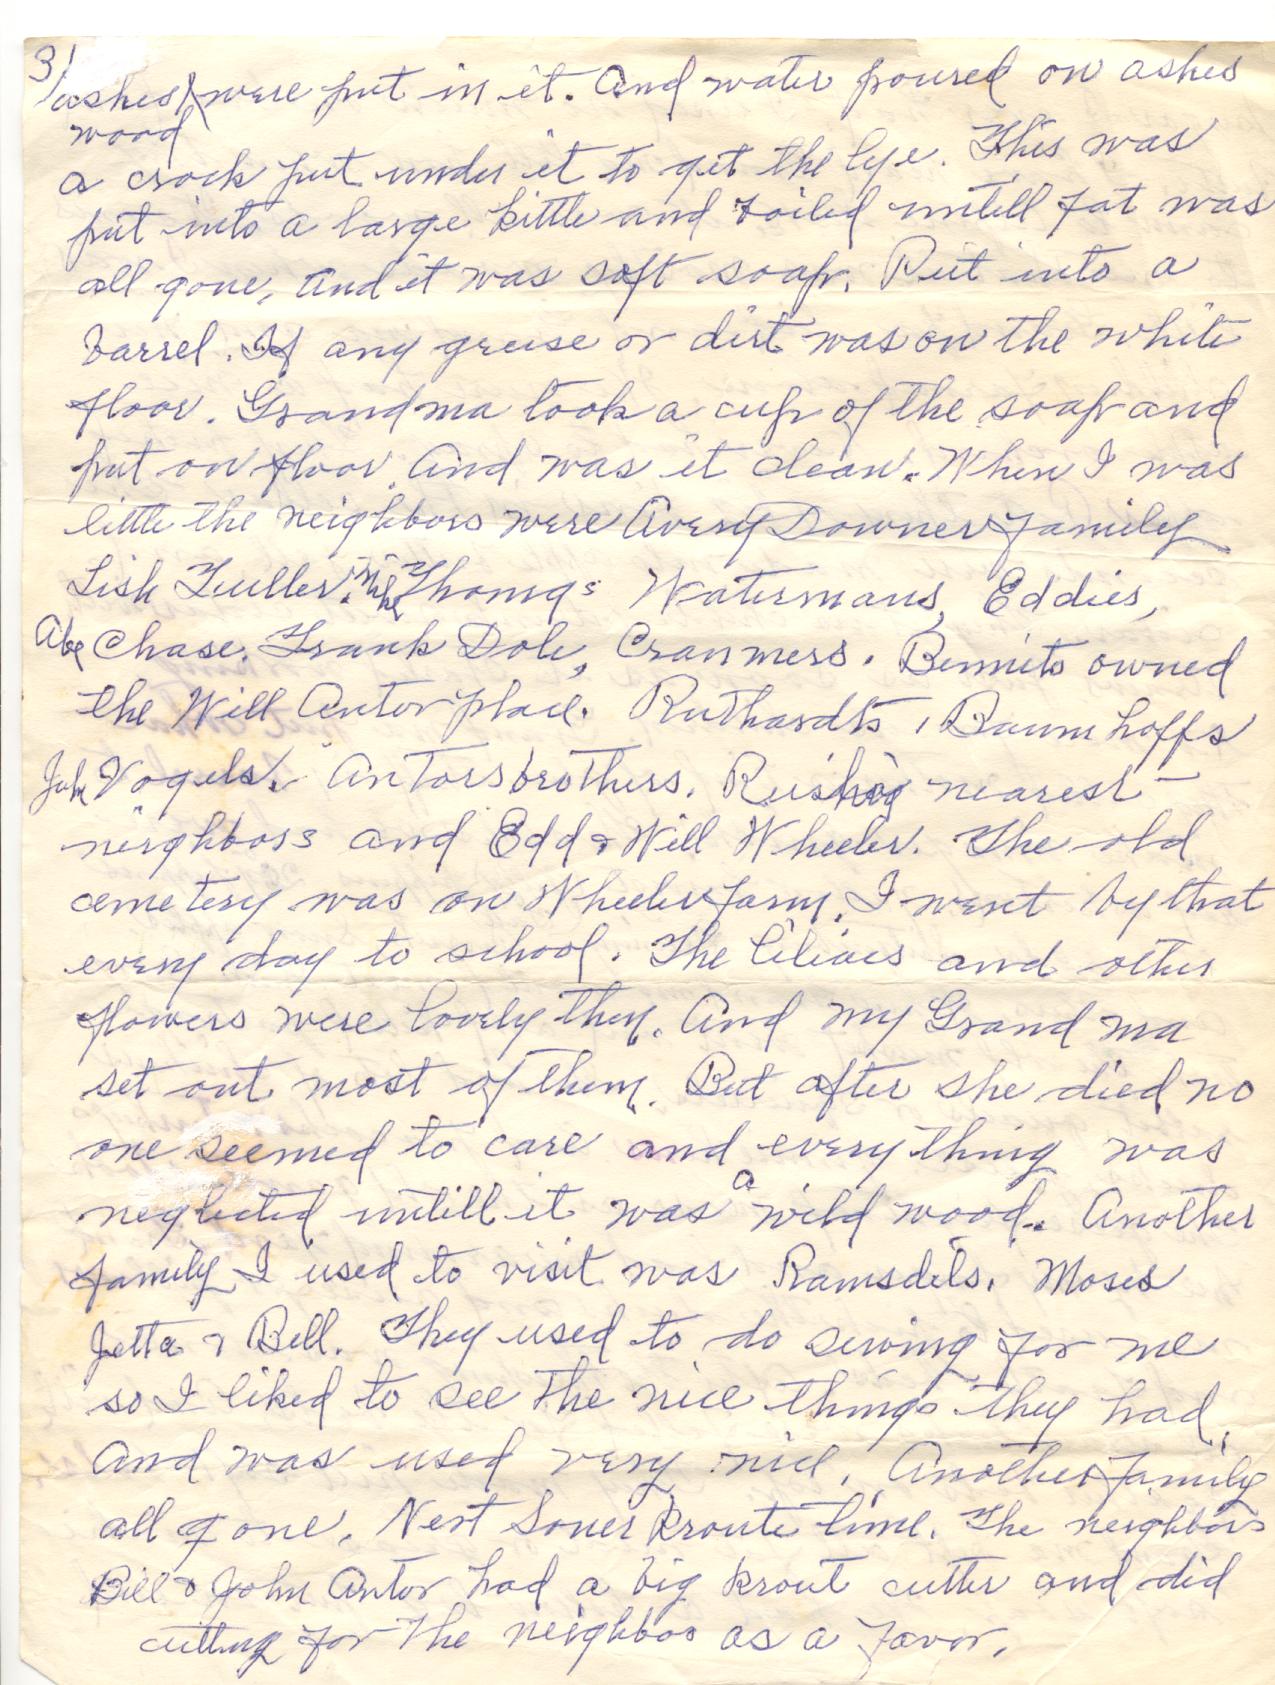 3/
ashes were put in it. And water poured on ashes
wood
a crock put under it to get the lye. This was
put into a large kittle and boiled untill fat was
all gone, and it was soft soap. Put into a
barrel. If any grease or dirt was on the white
floor. Grandma took a cup of the soap and
put on floor. And was it clean. When I was
little the neighbors were Avery Downer family
Lish Fuller. Mike Thomas Watermans, Eddies,
Abe Chase. Frank Dole, Cranmers. Bennits owned
the Will Antor place. Ruthardts, Baumhoffs
Vogels. Antors brothers. nearest
neighbors and Edd & Will Wheeler. The old
cemetery was on Wheeler farm. I went by that
every day to school. The liliacs and other
flowers were lovely then. And my Grand ma
set out most of them. But after she died no
one seemed to care and everything was
neglected untill it was a wild wood. Another
family I used to visit was Ramsdels. Moses
Jetta & Bell. They used to do sewing for me
so I liked to see the nice things they had.
And was used very nice. Another family
all gone. Next Souer kroute time. The neighbors
Bill & John Antor had a big krout cutter and did
cutting for the neighbos as a favor.